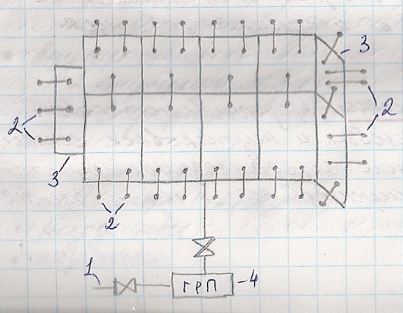 3
2
2
3
2
1
ГРП
-4